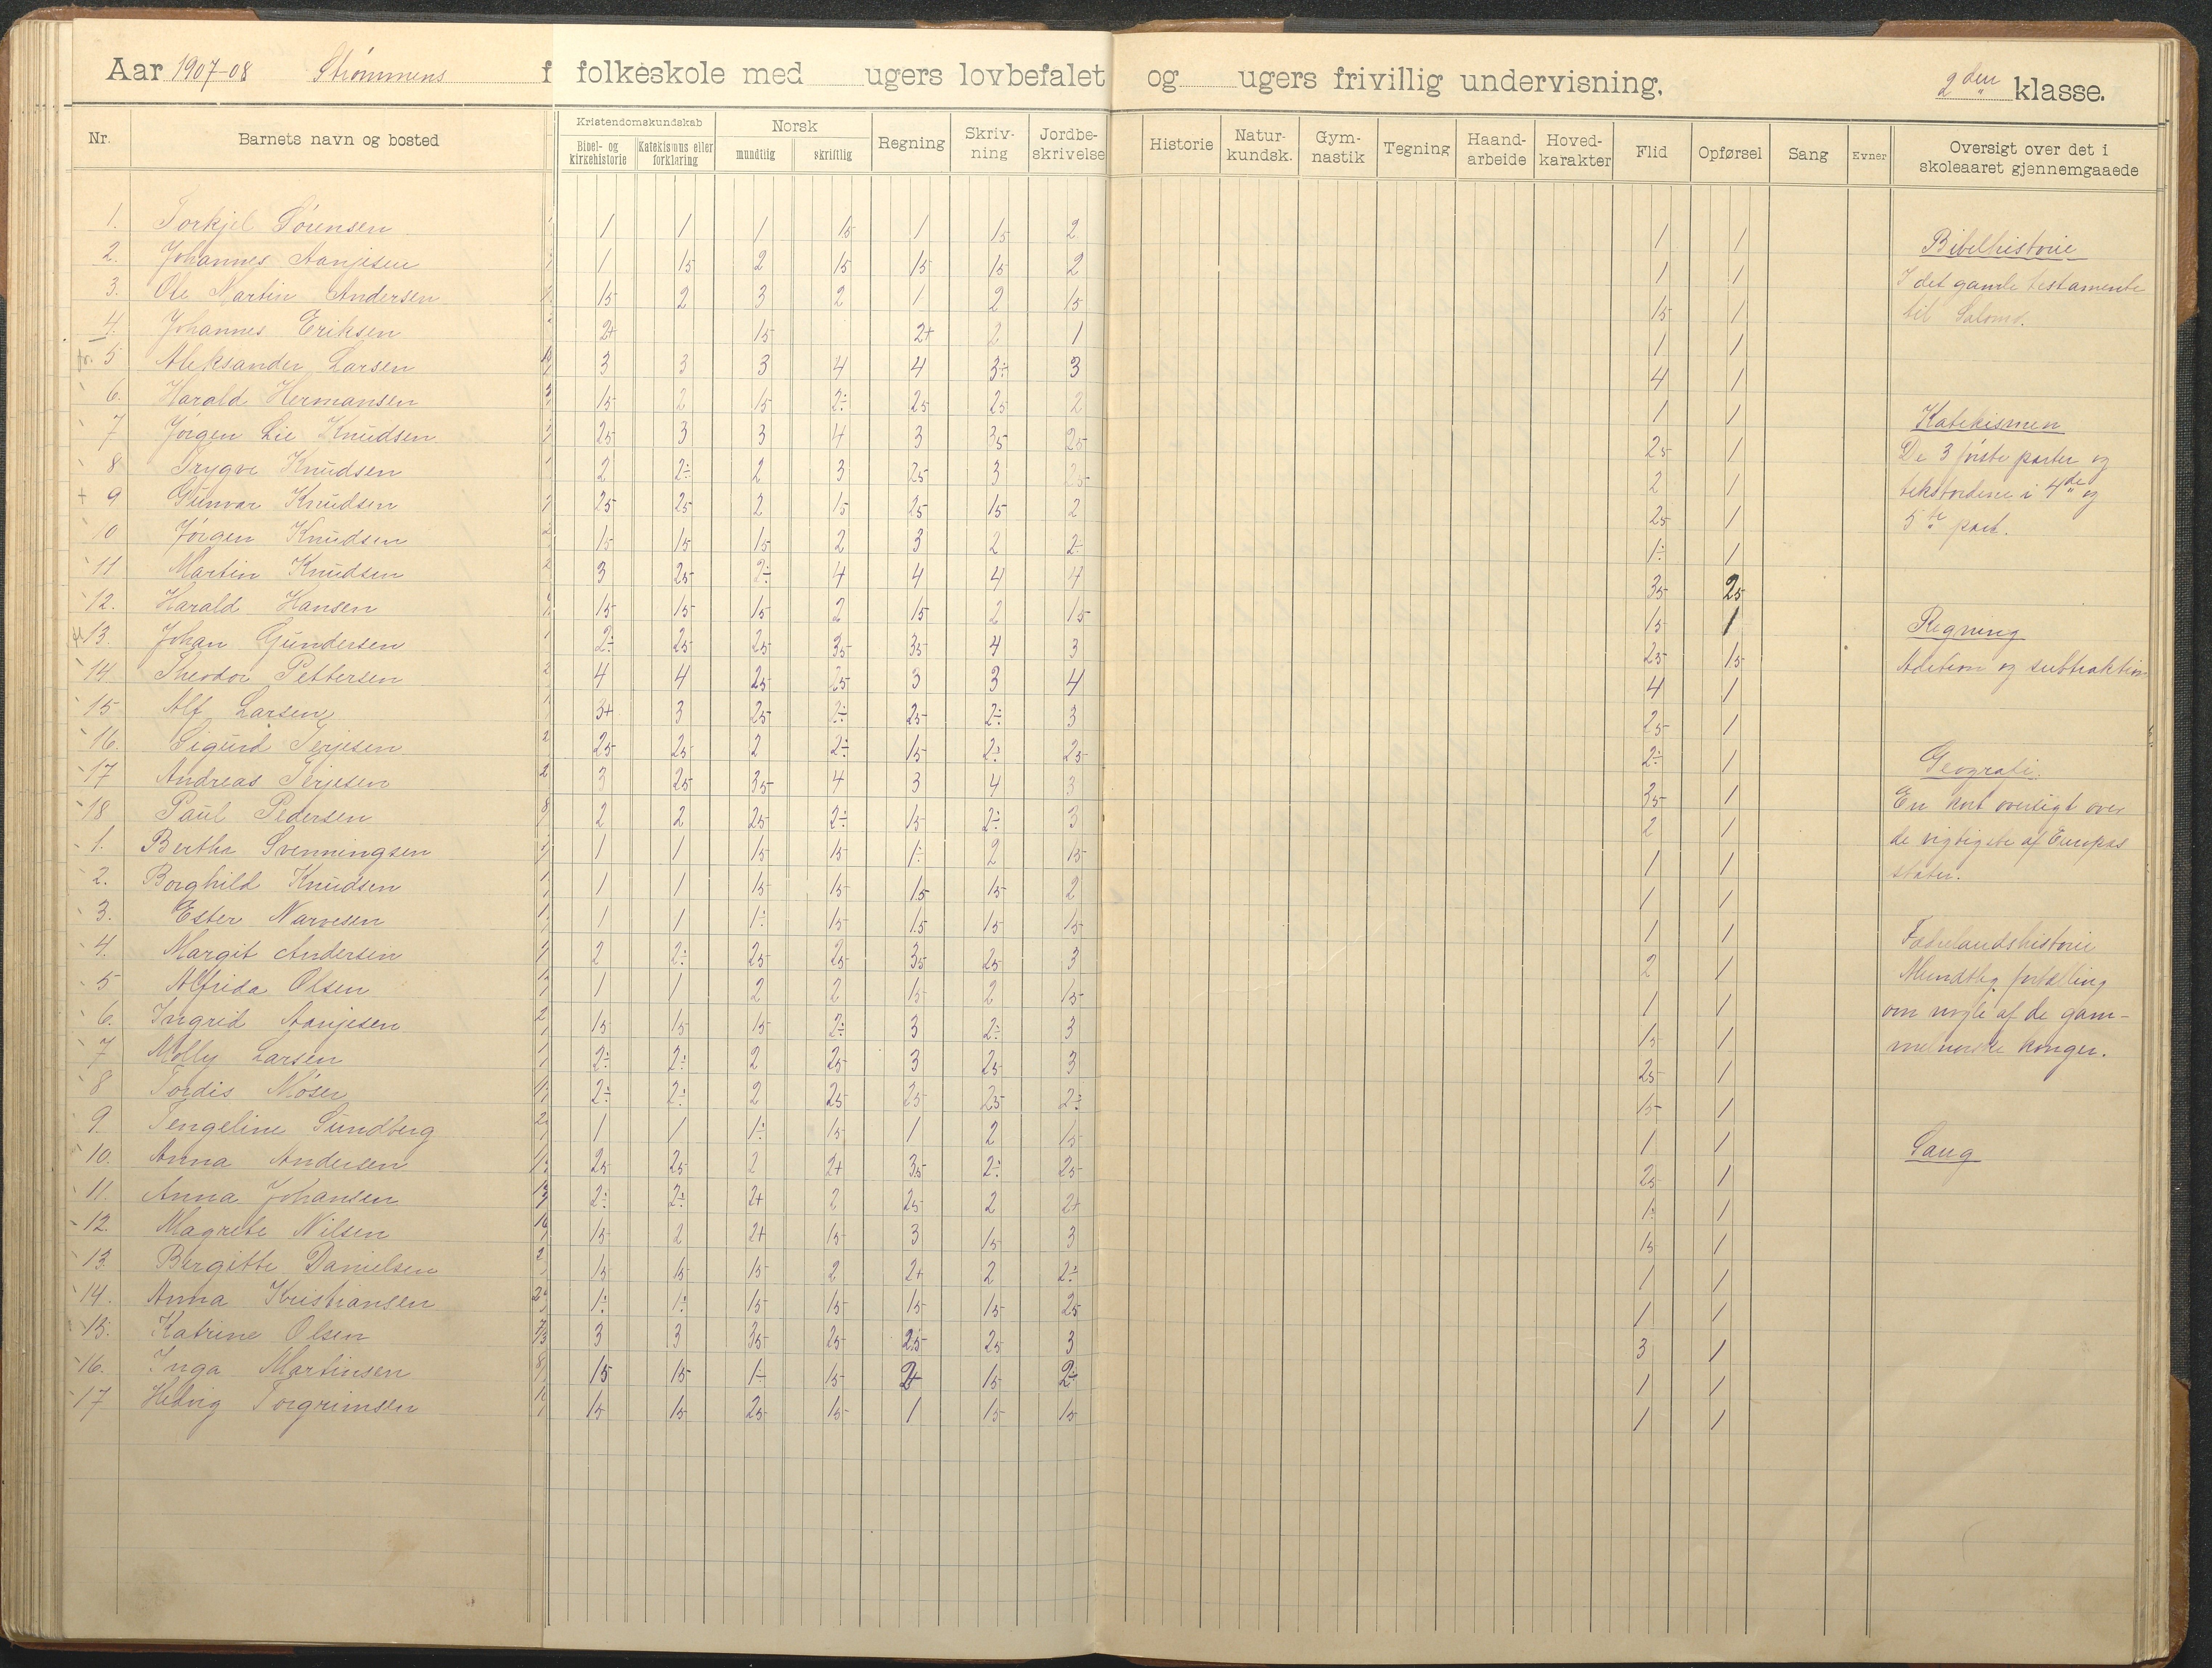 Aar 1907-08 Strømmens f folkeskole med ugers lovbefalet og ugers frivillig undervisning. 2den klasse.
Nr. Barnets navn og bosted Kristendomskundskab Bibel- og kirkehistorie Katekismus eller forklaring Norsk mundtlig skriftlig Regning Skriv-ning Jordbe-skrivelse Historie Natur-kundsk. Gym-nastik Tegning Haand-arbeide Hoved-karakter Flid Opførsel Sang Evner Oversigt over det i skoleaaret gjennemgaaede
1. Torkjel Sørensen 1 1 1 15 1 15 2 1 1
2. Johannes Aanjesen 1 15 2 15 15 15 2 1 1
3. Ole Martin Andersen 15 2 3 2 1 2 15 15 1
4. Johannes Eriksen 2+ 15 2+ 2 1 1 1
5 Aleksander Larsen 3 3 3 4 4 3÷ 3 4 1
6. Harald Hermansen 15 2 15 2÷ 25 25 2 1 1
7 Jørgen Lie Knudsen 25 3 3 4 3 35 25 25 1
8 Trygve Knudsen 2 2÷ 2 3 25 3 25 2 1
+ 9 Gunvar Knudsen 25 25 2 15 25 15 2 25 1
10 Jørgen Knudsen 15 15 15 2 3 2 2÷ 1÷ 1
11 Martin Knudsen 3 25 2÷ 4 4 4 4 35 25
12. Harald Hansen 15 15 15 2 15 2 15 15 1
13. Johan Gundersen 2÷ 25 25 35 35 4 3 25 15
14 Theodor Pettersen 4 4 25 25 3 3 4 4 1
15 Alf Larsen 3+ 3 25 2÷ 25 2÷ 3 25 1
16. Sigurd Terjesen 25 25 2 2÷ 15 2÷ 25 2÷ 1
17 Andreas Terjesen 3 25 35 4 3 4 3 35 1
18 Paul Pedersen 2 2 25 2÷ 15 2÷ 3 2 1
1. Bertha Svenningsen 1 1 15 15 1÷ 2 15 1 1
2. Borghild Knudsen 1 1 15 15 15 15 2 1 1
3. Ester Narvesen 1 1 1÷ 15 15 15 15 1 1
4. Margit Andersen 2 2÷ 25 25 35 25 3 2 1
5 Alfrida Olsen 1 1 2 2 15 2 15 1 1
6. Ingrid Aanjesen 15 15 15 2÷ 3 2÷ 3 15 1
7 Molly Larsen 2÷ 2÷ 2 25 3 25 3 25 1
8 Tordis Moser 2÷ 2÷ 2 25 25 25 2÷ 15 1
9. Tengeline Sundberg 1 1 1÷ 15 1 2 15 1 1
10. Anna Andersen 25 25 2 2+ 35 2÷ 25 25 1
11. Anna Johansen 2÷ 2÷ 2+ 2 25 2 2+ 1÷ 1
12. Magrete Nilsen 15 2 2+ 15 3 15 3 15 1
13. Bergitte Danielsen 15 15 15 2 2+ 2 2÷ 1 1
14. Anna Kristiansen 1÷ 1÷ 15 15 15 15 25 1 1
15. Katrine Olsen 3 3 35 25 25 25 3 3 1
16. Inga Martinsen 15 15 1÷ 15 2+ 15 2÷ 1 1
17 Hedvig Torgrimsen 15 15 25 15 1 15 15 1 1
Bibelhistorie
I det gamle testamente
til Salomo.
Katekismen
De 3 første parter og
tekstordene i 4de og
5te part.
Regning
Adetion og subtraktion
Geografi.
En kort oversigt over
de vigtigste af Europas
stater.
Fædrelandshistorie
Mundtlig fortælling
om nogle af de gam-
melnorske konger.
Sang